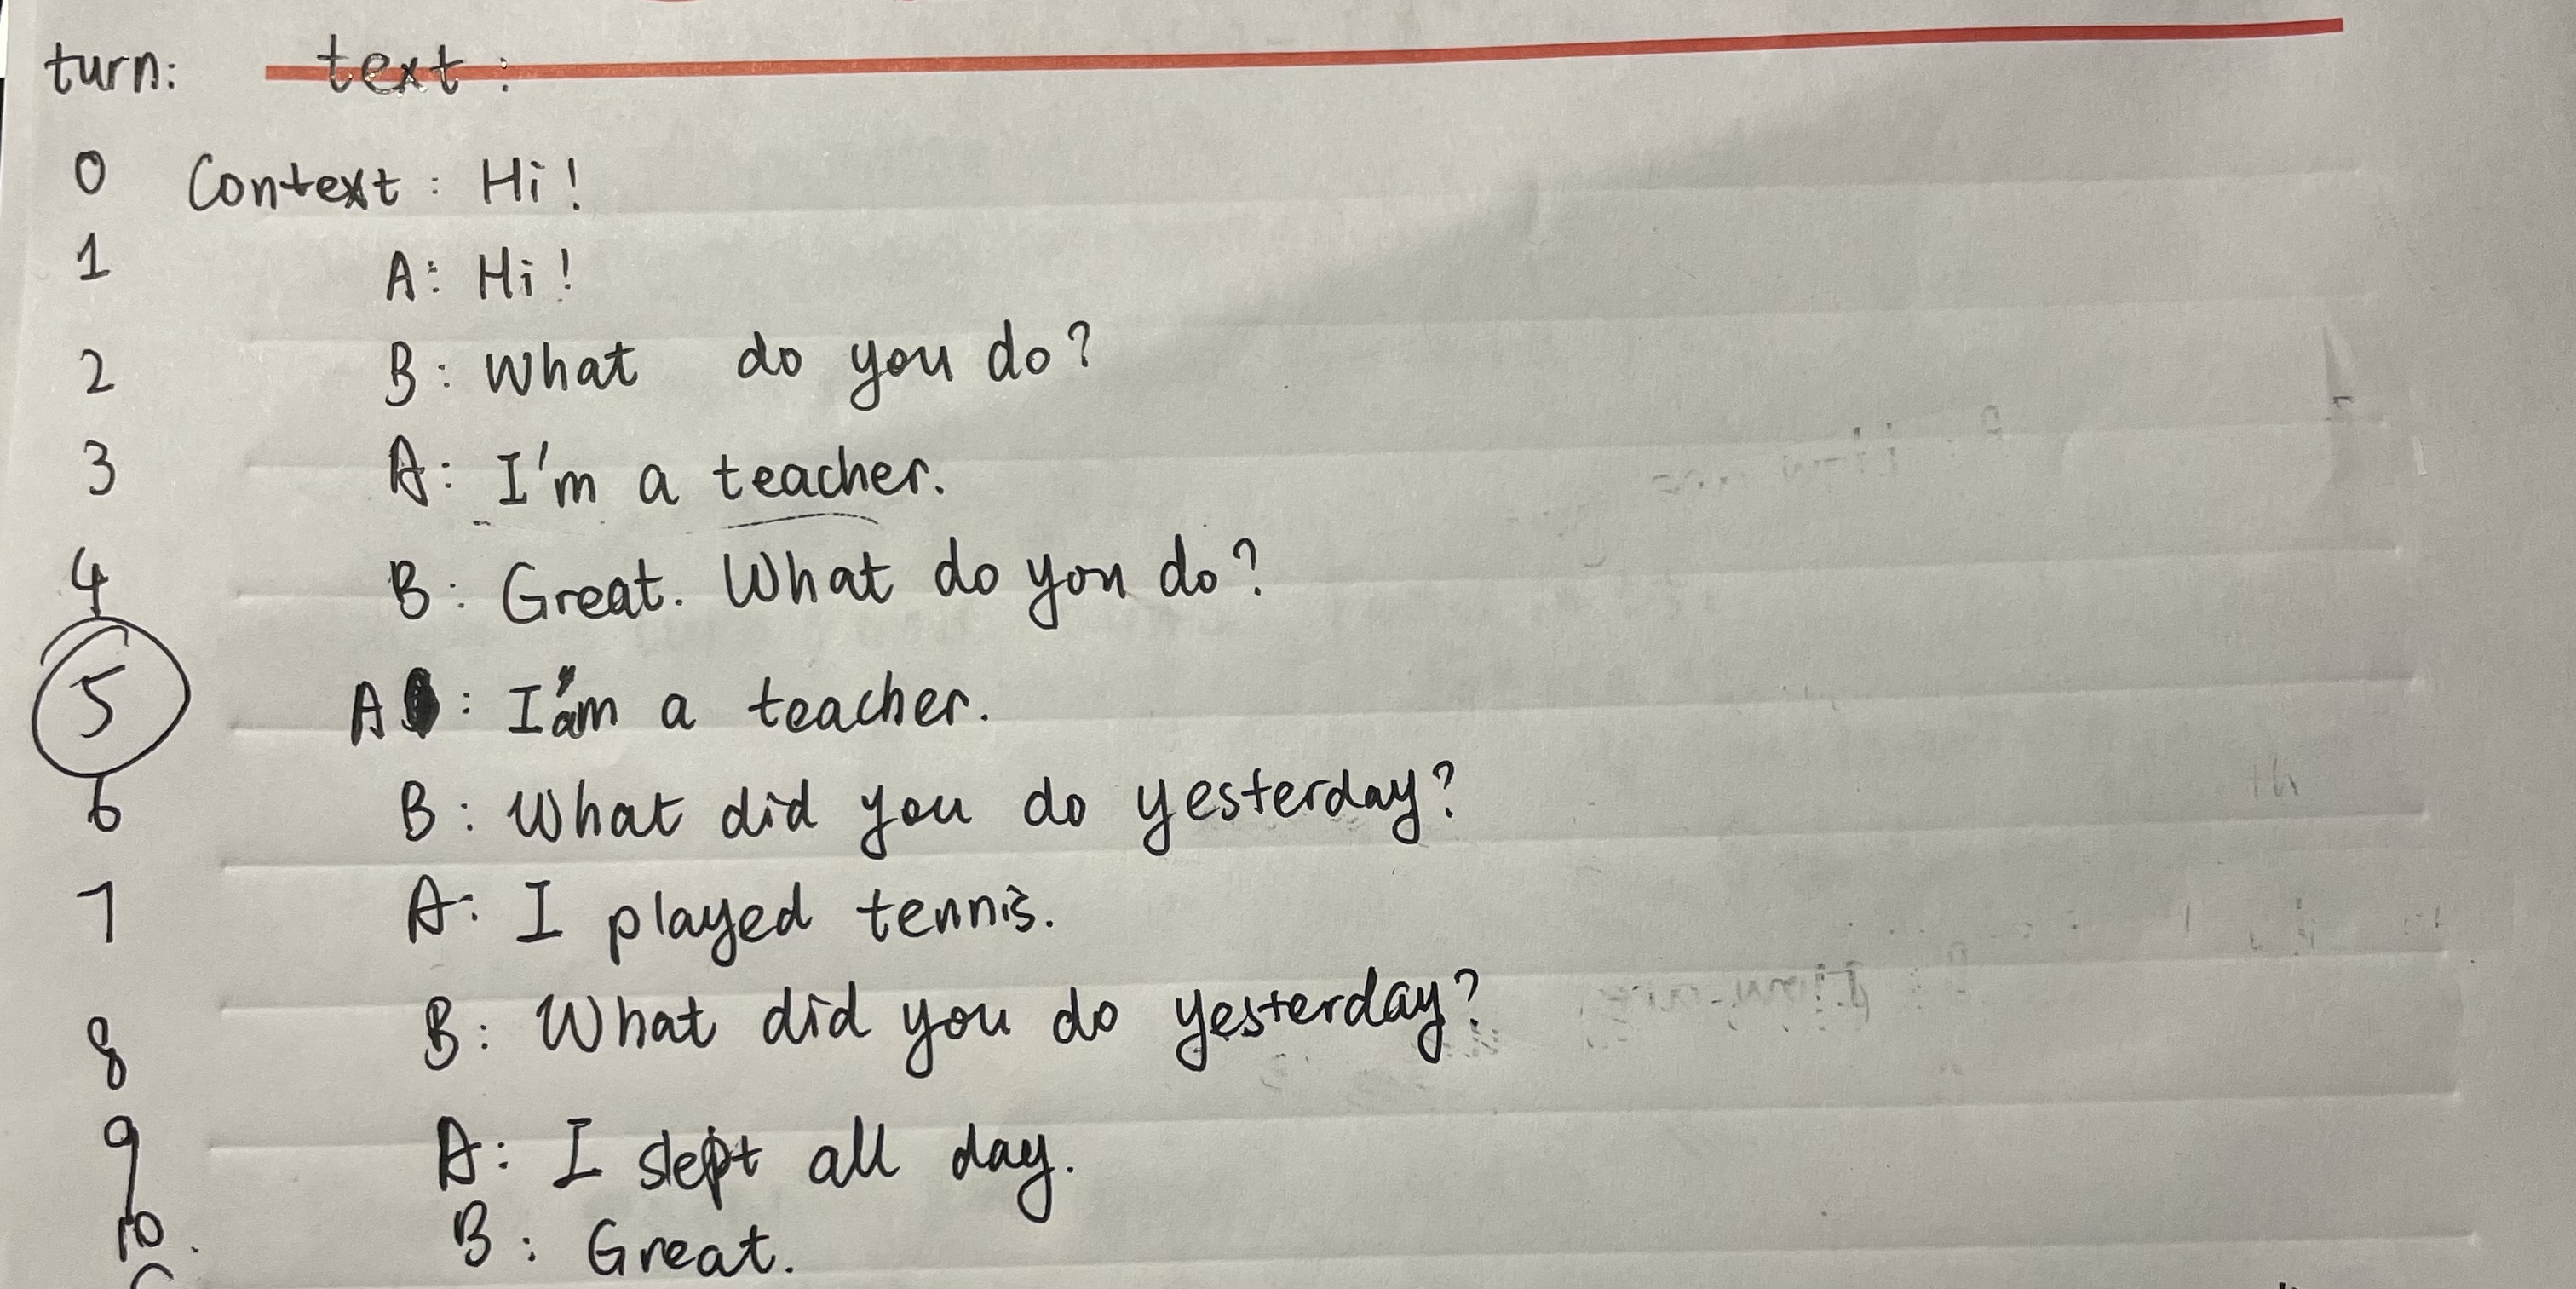 turn: text:
0 Context: Hi!
1 A: Hi!
2 B: What do you do?
3 A: I'm a teacher.
4 B: Great. What do you do?
5 A: I am a teacher.
6 B: What did you do yesterday?
7 A: I played tennis.
8 B: What did you do yesterday?
9 A: I slept all day.
10. B: Great.